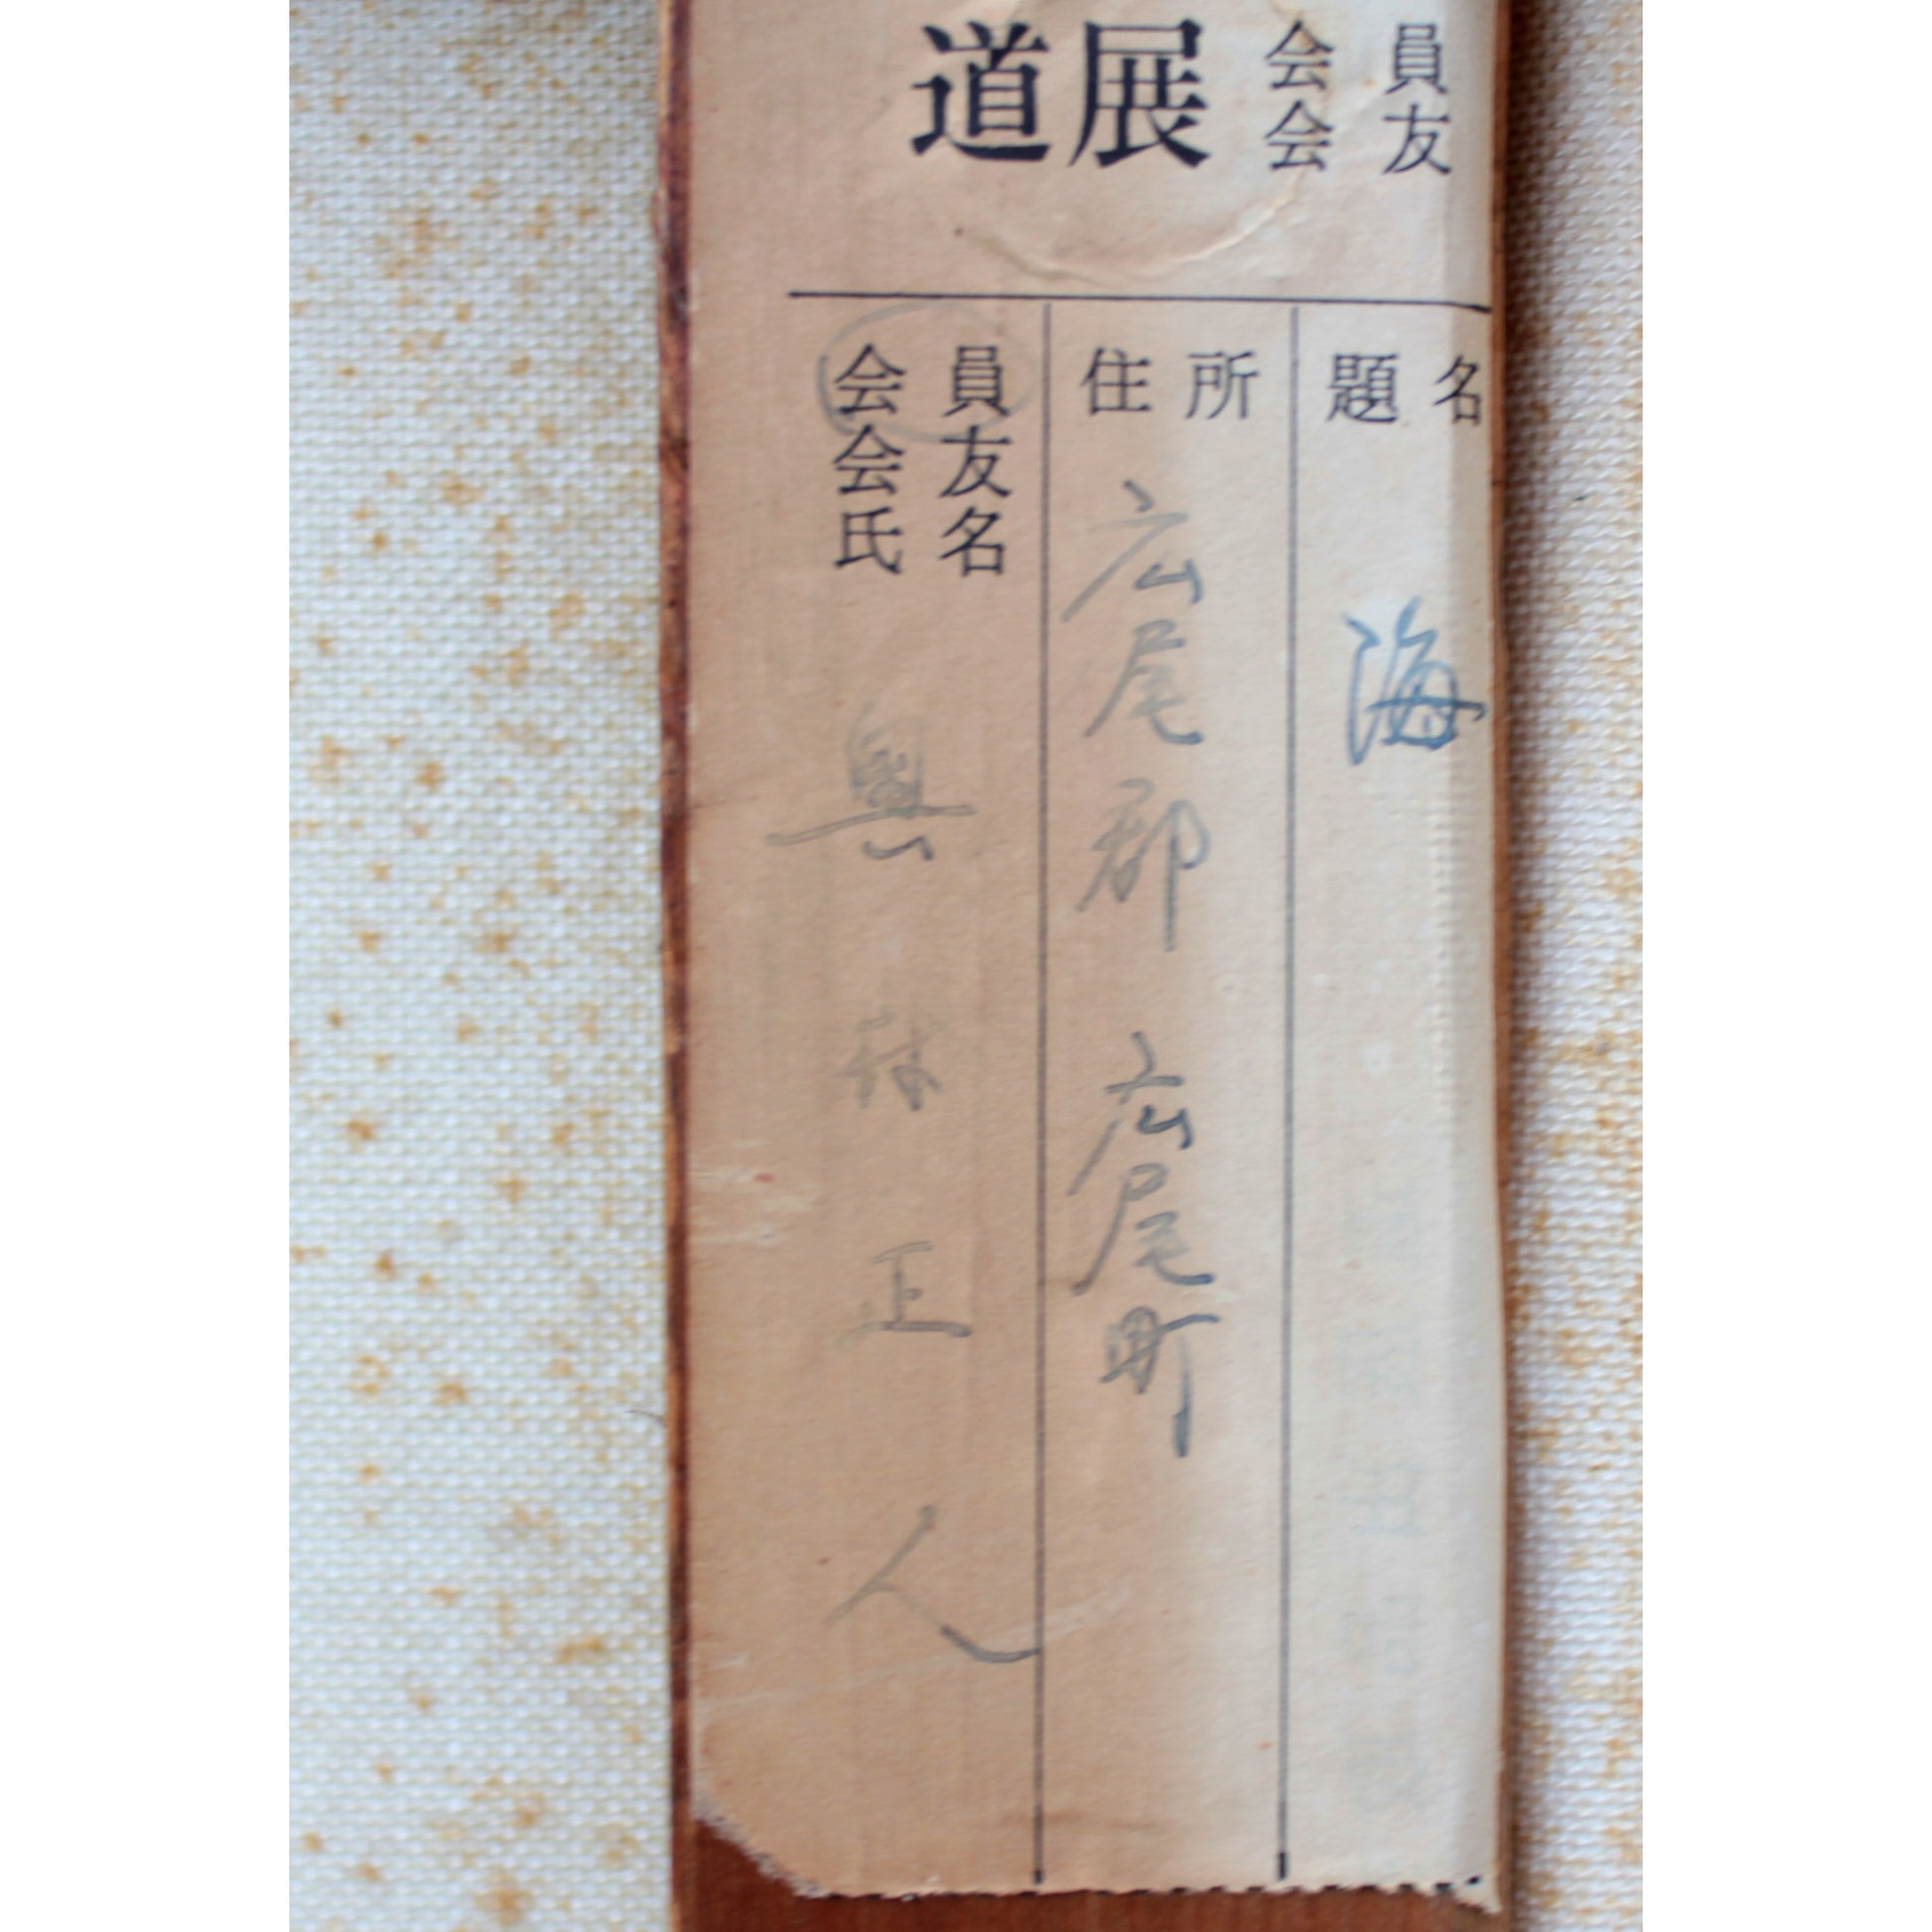 道展 会員
会友
題名 海
住所 広尾郡 広尾町
会員
会友
氏名 奥 正人